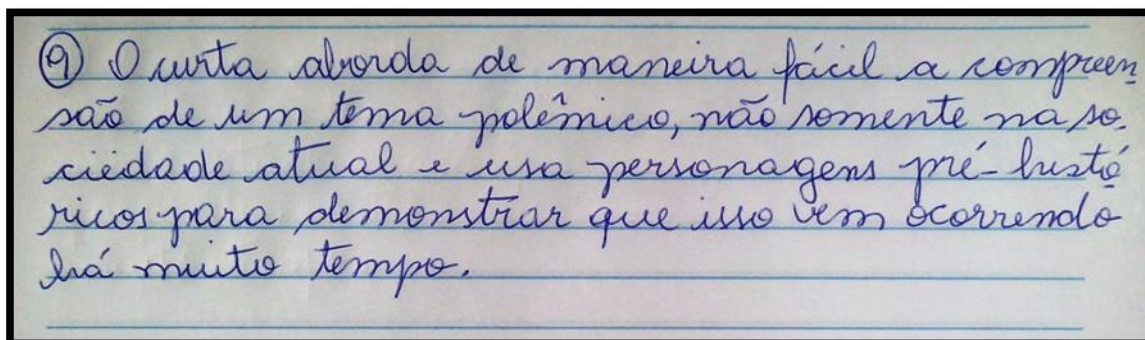 9 O curta aborda de maneira fácil a compreen
são de um tema polêmico, não somente na so-
ciedade atual e usa personagens pré-histó
ricos para demonstrar que isso vem ocorrendo
há muito tempo.